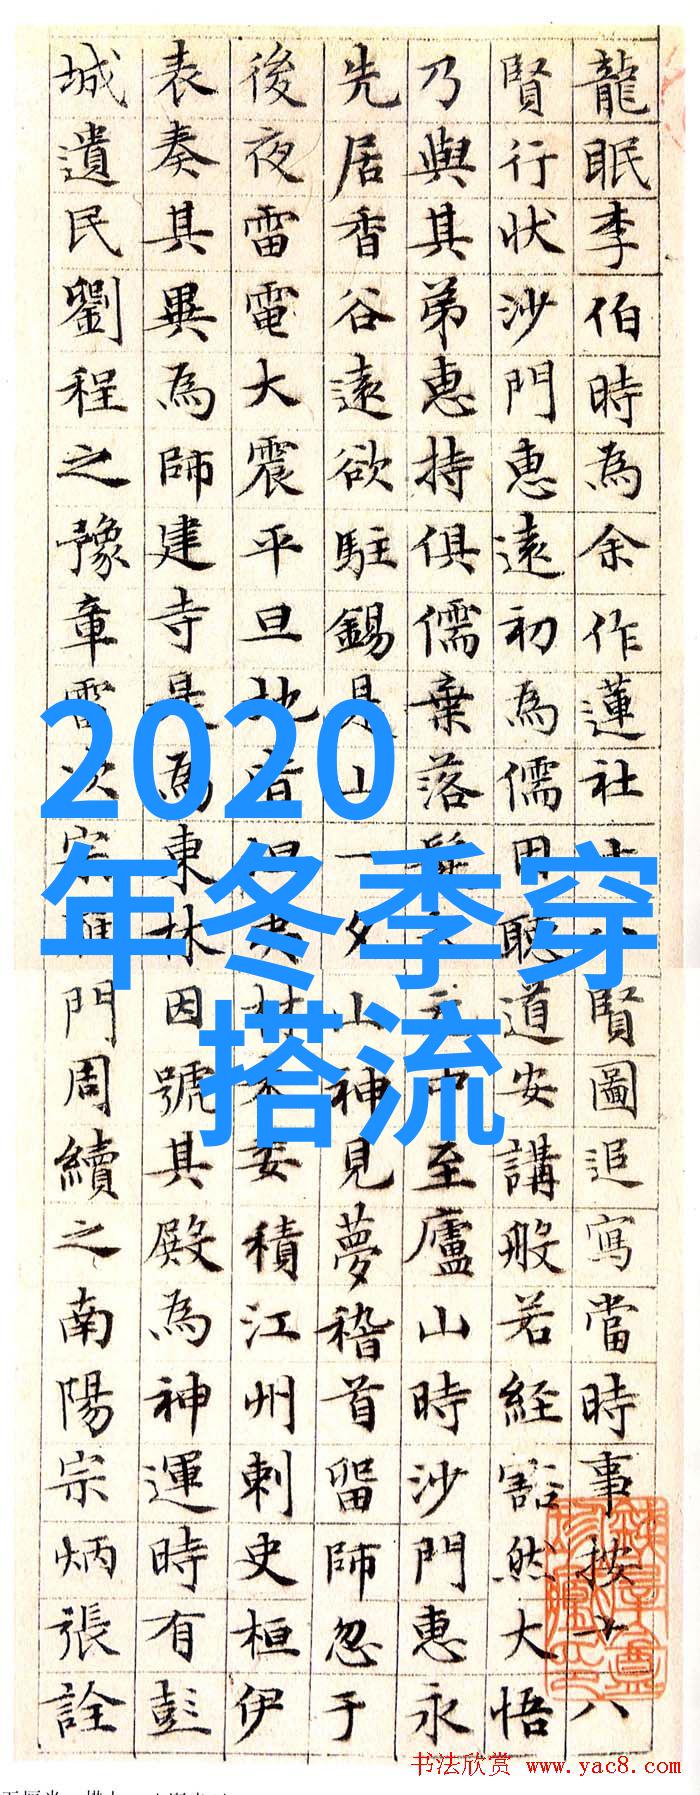 龍眠李伯時為余作蓮社十八賢圖追寫當時事按十八
賢行狀沙門惠遠初為儒因聽道安講般若経豁然大悟
乃與其弟惠持俱儒棄落髮元中至廬山時沙門惠永
先居香谷遠欲駐錫是山一夕山神見夢稽首留師忽于
後夜雷電大震平旦地皆坦夷材木委積江州刺史桓伊
表奏其異為師建寺是為東林因號其殿為神運時有彭
城遺民劉程之豫章雷次宗雁門周續之南陽宗炳張詮
2020
年冬季穿
搭流
书法欣赏 www.yac8.com